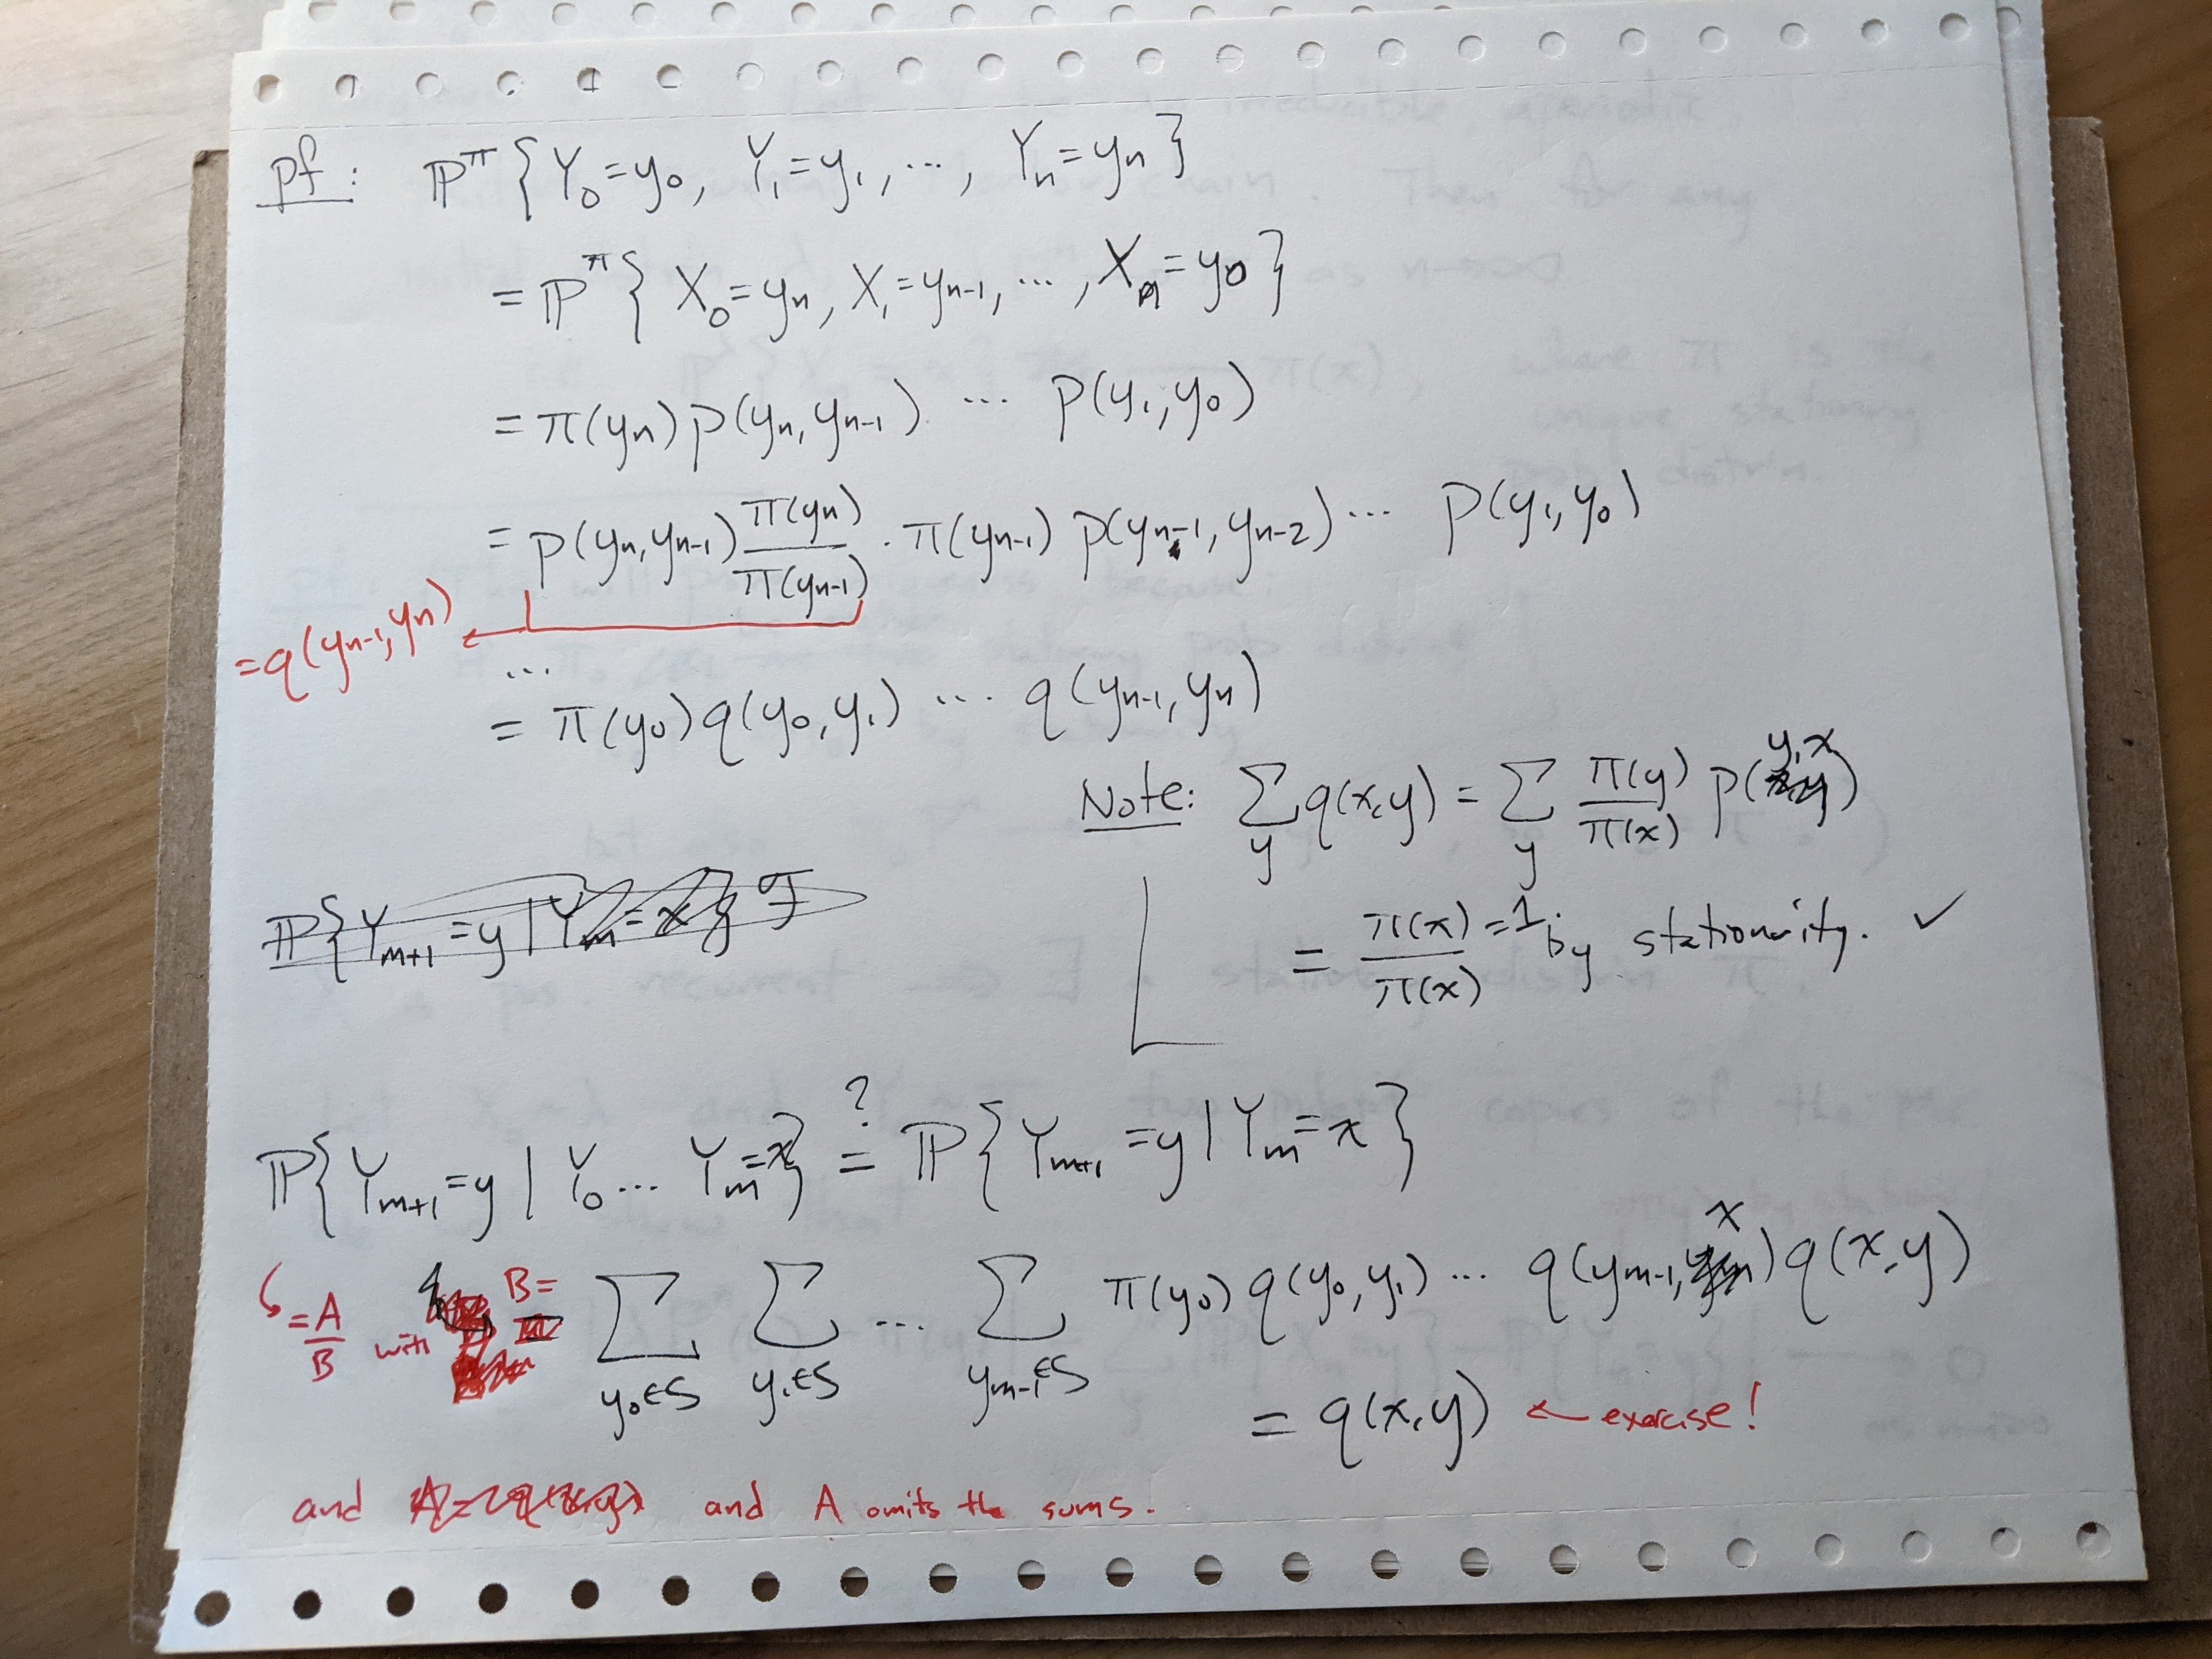 pf: ℙ^π{Y₀=y₀, Y₁=y₁, ..., Yₙ=yₙ}
= ℙ^π{X₀=yₙ, X₁=yₙ₋₁, ..., Xₙ=y₀}
= π(yₙ)p(yₙ,yₙ₋₁) ... p(y₁,y₀)
= p(yₙ,yₙ₋₁) π(yₙ)/π(yₙ₋₁) · π(yₙ₋₁) p(yₙ₋₁,yₙ₋₂) ... p(y₁,y₀)
= q(yₙ₋₁,yₙ) ←
...
= π(y₀)q(y₀,y₁) ... q(yₙ₋₁,yₙ)
Note: Σ_y q(x,y) = Σ_y π(y)/π(x) p(y,x)
= π(x)/π(x) = 1 by stationarity. ✓
ℙ{Yₘ₊₁=y | Yₘ=x}
ℙ{Yₘ₊₁=y | Y₀ ... Yₘ=x} ?= ℙ{Yₘ₊₁=y | Yₘ=x}
= A/B with B = Σ_{y₀∈S} Σ_{y₁∈S} ... Σ_{yₘ₋₁∈S} π(y₀) q(y₀,y₁) ... q(yₘ₋₁,x) q(x,y)
= q(x,y) ← exercise!
and and A omits the sums.